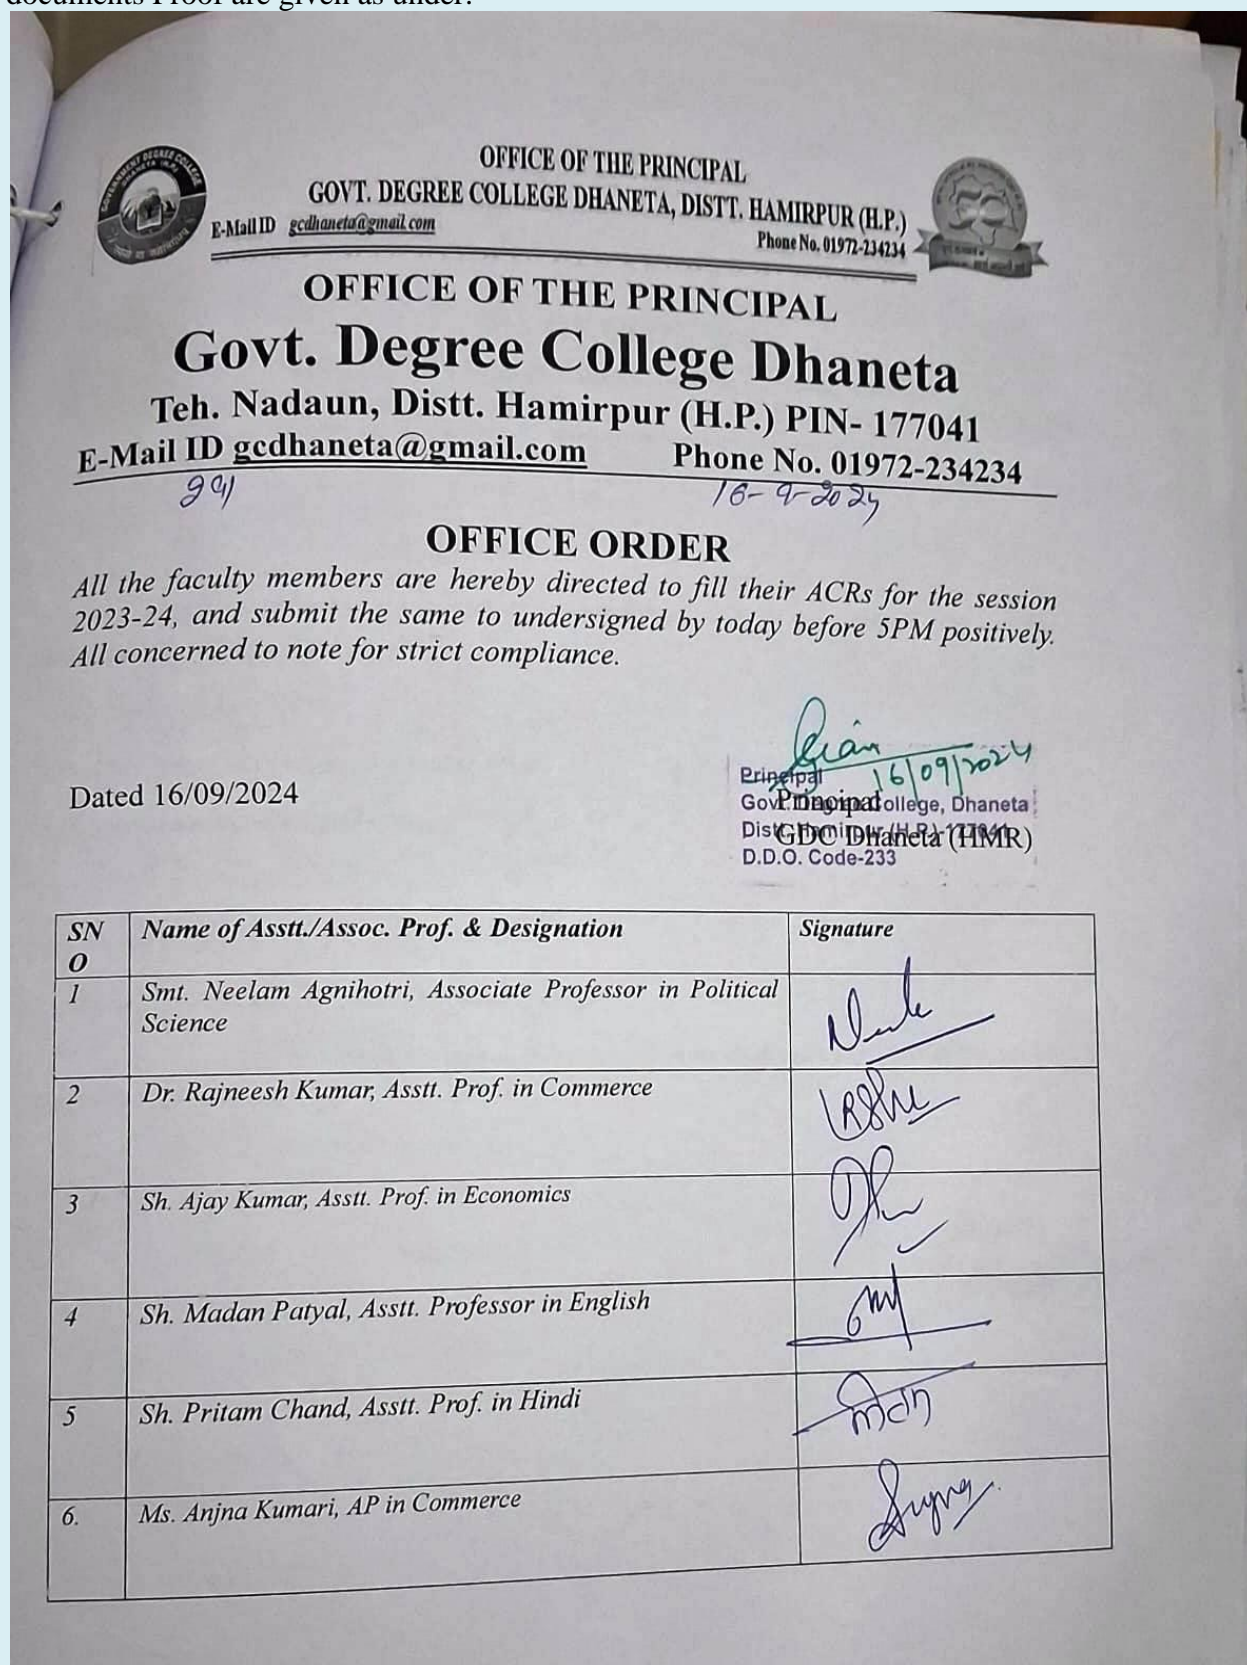 documents Proof are given as under:
GOVERNMENT DEGREE COLLEGE
DHANETA (H.P.)
OFFICE OF THE PRINCIPAL
GOVT. DEGREE COLLEGE DHANETA, DISTT. HAMIRPUR (H.P.)
E-Mail ID gcdhaneta@gmail.com
Phone No. 01972-234234
OFFICE OF THE PRINCIPAL
Govt. Degree College Dhaneta
Teh. Nadaun, Distt. Hamirpur (H.P.) PIN- 177041
E-Mail ID gcdhaneta@gmail.com Phone No. 01972-234234
16-9-2024
OFFICE ORDER
All the faculty members are hereby directed to fill their ACRs for the session
2023-24, and submit the same to undersigned by today before 5PM positively.
All concerned to note for strict compliance.
16/09/2024
Dated 16/09/2024
Principal
Govt. Degree College, Dhaneta
Distt. Hamirpur (H.P.)-177041
D.D.O. Code-233
Principal
GDC Dhaneta (HMR)
SN Name of Asstt./Assoc. Prof. & Designation Signature
O
1 Smt. Neelam Agnihotri, Associate Professor in Political
Science
2 Dr. Rajneesh Kumar, Asstt. Prof. in Commerce
3 Sh. Ajay Kumar, Asstt. Prof. in Economics
4 Sh. Madan Patyal, Asstt. Professor in English
5 Sh. Pritam Chand, Asstt. Prof. in Hindi
6. Ms. Anjna Kumari, AP in Commerce